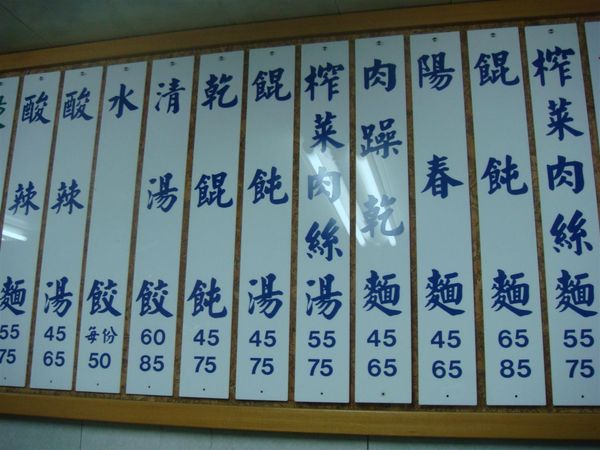 榨菜肉絲麵
55
75
餛飩麵
65
85
陽春麵
45
65
肉躁乾麵
45
65
榨菜肉絲湯
55
75
餛飩湯
45
75
乾餛飩
45
75
清湯餃
60
85
水餃
每份
50
酸辣湯
45
65
酸辣麵
55
75